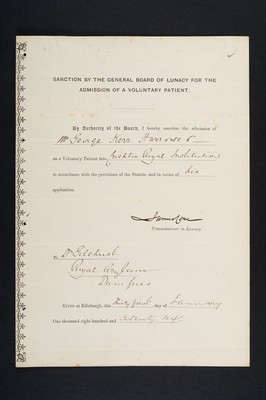 SANCTION BY THE GENERAL BOARD OF LUNACY FOR THE
ADMISSION OF A VOLUNTARY PATIENT.
By Authority of the Board, I hereby sanction the admission of
Mr George Kerr
as a Voluntary Patient into Crichton Royal Institution
in accordance with the provisions of the Statute, and in terms of his
application.
Commissioner in Lunacy.
To Dr Gilchrist
Royal Asylum
Dumfries
Given at Edinburgh, this thirty first day of January
One thousand eight hundred and seventy six.